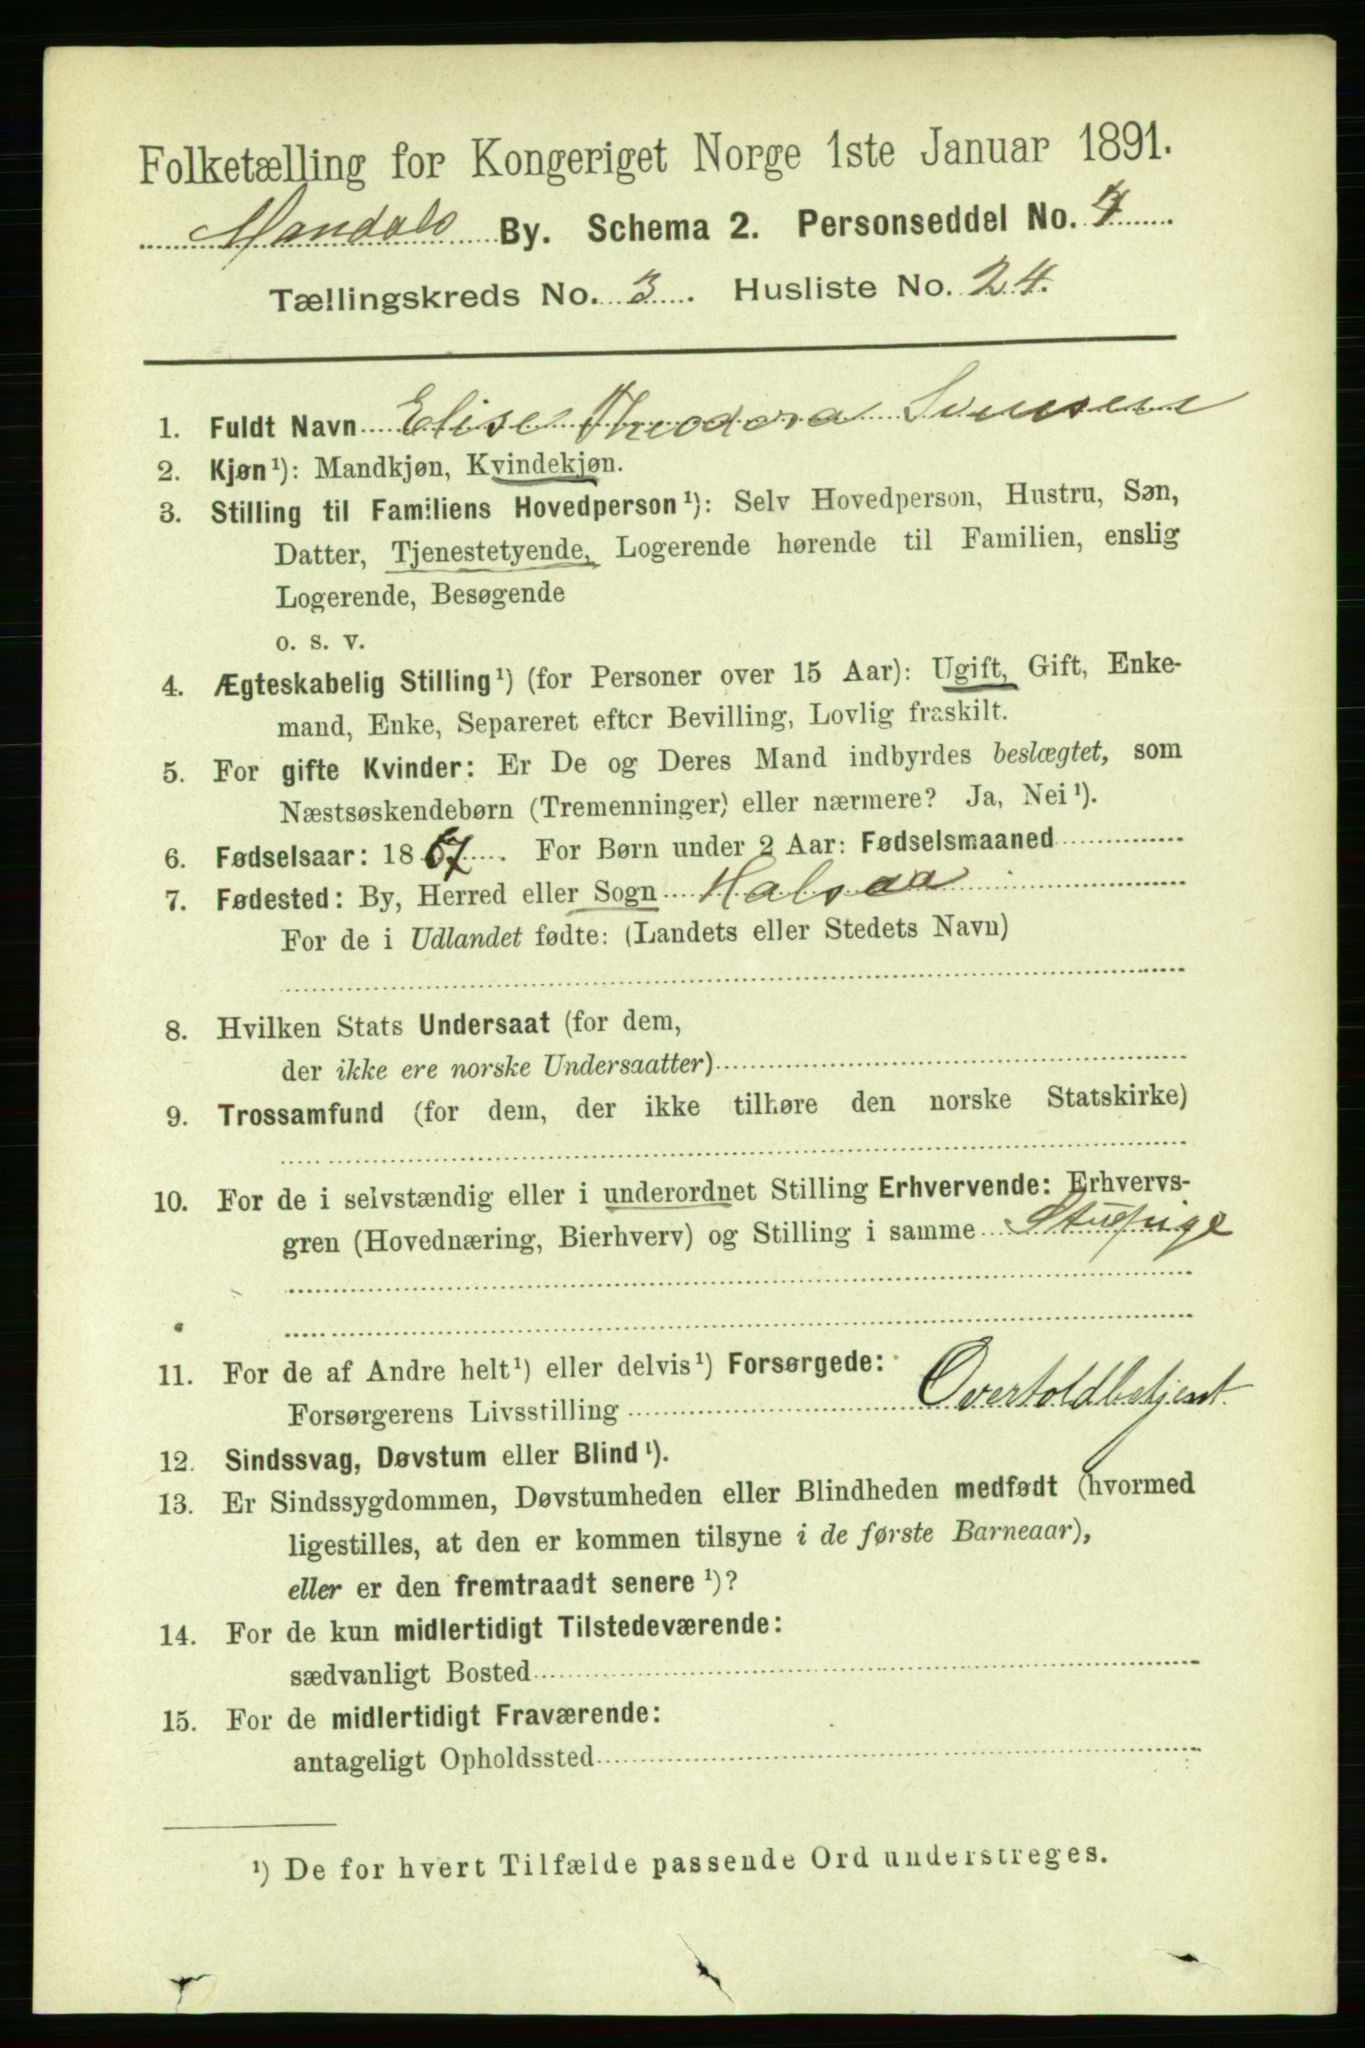 Folketælling for Kongeriget Norge 1ste Januar 1891.
Mandals By. Schema 2. Personseddel No. 4
Tællingskreds No. 3. Husliste No. 24.
1. Fuldt Navn Elise Theodora Svensen
2. Kjøn¹): Mandkjøn, Kvindekjøn.
3. Stilling til Familiens Hovedperson¹): Selv Hovedperson, Hustru, Søn,
Datter, Tjenestetyende, Logerende hørende til Familien, enslig
Logerende, Besøgende
o. s. v.
4. Ægteskabelig Stilling¹) (for Personer over 15 Aar): Ugift, Gift, Enke-
mand, Enke, Separeret efter Bevilling, Lovlig fraskilt.
5. For gifte Kvinder: Er De og Deres Mand indbyrdes beslægtet, som
Næstsøskendebørn (Tremenninger) eller nærmere? Ja, Nei¹).
6. Fødselsaar: 1867. For Børn under 2 Aar: Fødselsmaaned
7. Fødested: By, Herred eller Sogn Halsaa
For de i Udlandet fødte: (Landets eller Stedets Navn)
8. Hvilken Stats Undersaat (for dem,
der ikke ere norske Undersaatter)
9. Trossamfund (for dem, der ikke tilhøre den norske Statskirke)
10. For de i selvstændig eller i underordnet Stilling Erhvervende: Erhvervs-
gren (Hovednæring, Bierhverv) og Stilling i samme Stuepige
11. For de af Andre helt¹) eller delvis¹) Forsørgede:
Forsørgerens Livsstilling Overtoldbetjent
12. Sindssvag, Døvstum eller Blind¹).
13. Er Sindssygdommen, Døvstumheden eller Blindheden medfødt (hvormed
ligestilles, at den er kommen tilsyne i de første Barneaar),
eller er den fremtraadt senere¹)?
14. For de kun midlertidigt Tilstedeværende:
sædvanligt Bosted
15. For de midlertidigt Fraværende:
antageligt Opholdssted
¹) De for hvert Tilfælde passende Ord understreges.